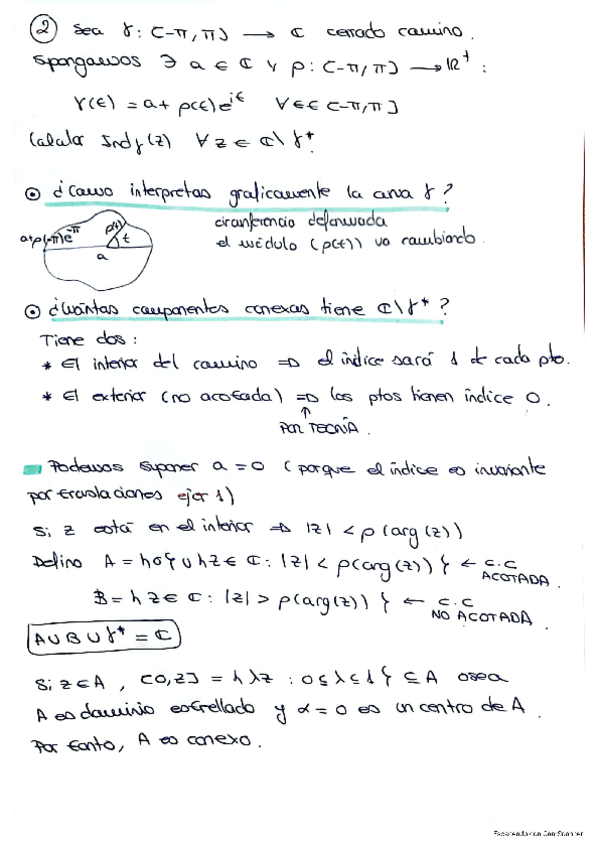 ② Sea γ: [-π, π] → ℂ cerrado camino.
Spongamos ∃ a ∈ ℂ y ρ: [-π, π] → ℝ⁺ :
γ(t) = a + ρ(t)e^{it} ∀t ∈ [-π, π]
Calcular Ind_γ(z) ∀z ∈ ℂ\γ*.
⊙ ¿Cómo interpretas graficamente la curva γ?
circunferencia deformada
el módulo (ρ(t)) va cambiando.
a+ρ(-π)e^{-π}
ρ(t)
t
a
⊙ ¿Cuántas componentes conexas tiene ℂ\γ*?
Tiene dos:
* El interior del camino ⇒ el índice sará 1 de cada pto.
* El exterior (no acotada) ⇒ los ptos tienen índice 0.
↑
POR TEORÍA.
Podemos suponer a = 0 (porque el índice es invariante
por translaciones ejer 1)
Si z está en el interior ⇒ |z| < ρ(arg(z))
Defino A = {0} ∪ {z ∈ ℂ: |z| < ρ(arg(z))} ← C.C
ACOTADA.
B = {z ∈ ℂ: |z| > ρ(arg(z))} ← C.C
NO ACOTADA.
A ∪ B ∪ γ* = ℂ
Si z ∈ A, [0,z] = {λz : 0 ≤ λ ≤ 1} ⊆ A osea
A es dominio estrellado y α = 0 es un centro de A.
Por tanto, A es conexo.
Escaneado con CamScanner